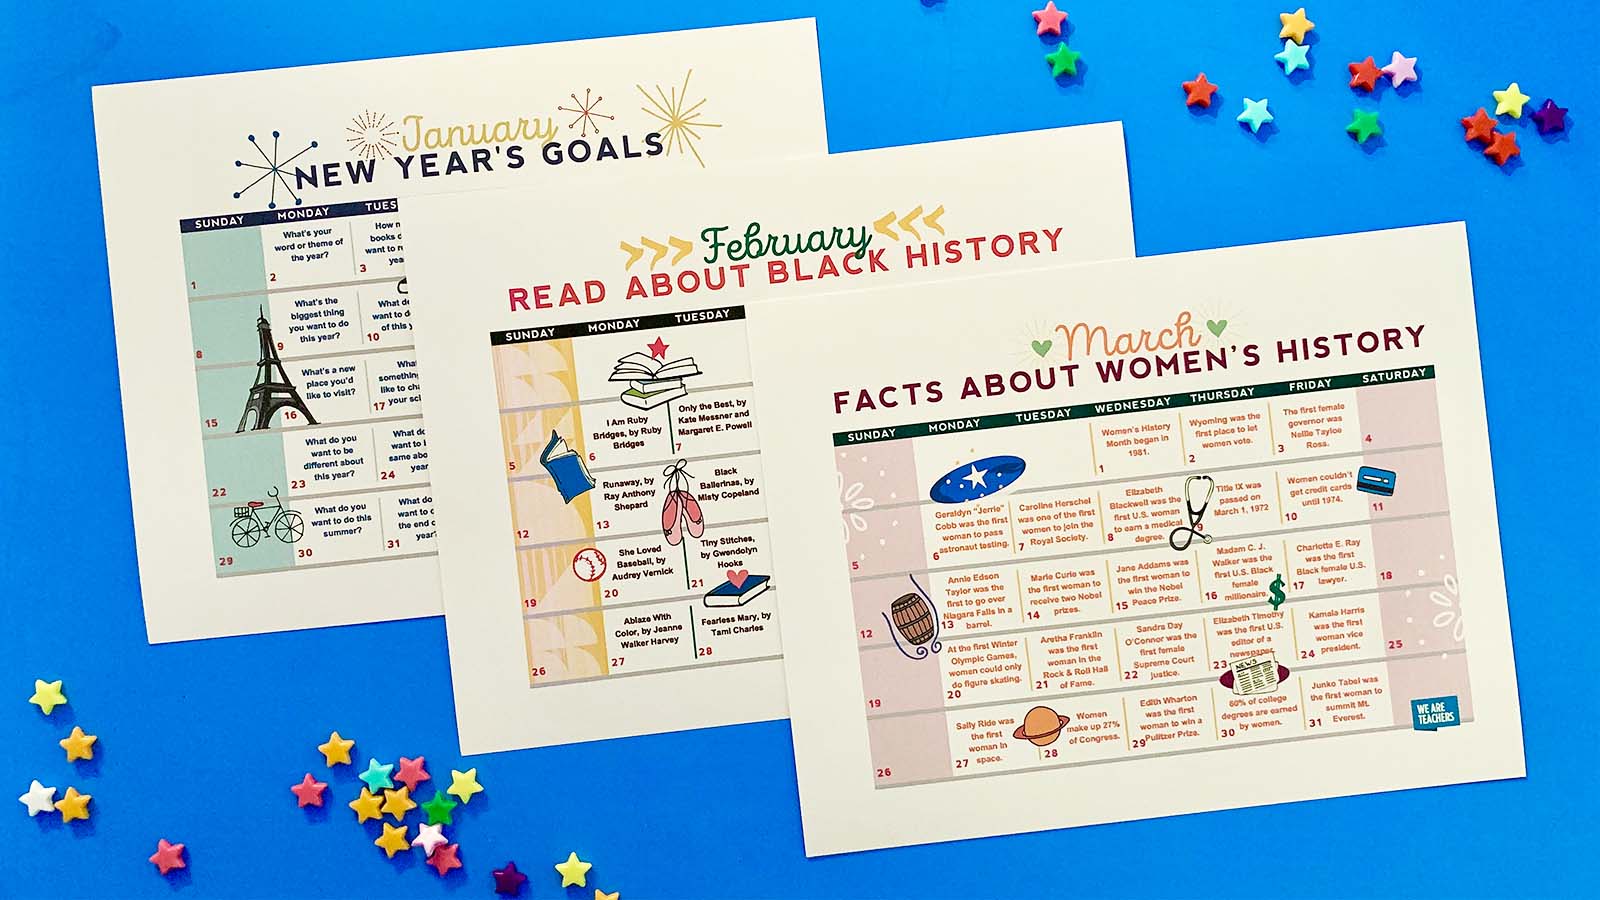 January
NEW YEAR'S GOALS
SUNDAY MONDAY TUES
1
What's your
word or theme of
the year?
2
books
want to
3
8
What's the
biggest thing
you want to do
this year?
9
What
want to
of this
10
15
What's a new
place you'd
like to visit?
16
like to
17 your
22
What do you
want to be
different about
this year?
23
want to
same
year
24
29
What do you
want to do this
summer?
30
What do
want to
the end
year?
31
>>> February <<<
READ ABOUT BLACK HISTORY
SUNDAY MONDAY TUESDAY
5
I Am Ruby
Bridges, by Ruby
Bridges
6
Only the Best, by
Kate Messner and
Margaret E. Powell
7
12
Runaway, by
Ray Anthony
Shepard
13
Black
Ballerinas, by
Misty Copeland
19
She Loved
Baseball, by
Audrey Vernick
20
Tiny Stitches,
by Gwendolyn
Hooks
21
26
Ablaze With
Color, by Jeanne
Walker Harvey
27
Fearless Mary, by
Tami Charles
28
March
FACTS ABOUT WOMEN'S HISTORY
SUNDAY MONDAY TUESDAY WEDNESDAY THURSDAY FRIDAY SATURDAY
Women's History
Month began in
1981.
1
Wyoming was the
first place to let
women vote.
2
The first female
governor was
Nellie Tayloe
Ross.
3
4
5
Geraldyn "Jerrie"
Cobb was the first
woman to pass
astronaut testing.
6
Caroline Herschel
was one of the first
women to join the
Royal Society.
7
Elizabeth
Blackwell was the
first U.S. woman
to earn a medical
degree.
8
Title IX was
passed on
March 1, 1972
9
Women couldn't
get credit cards
until 1974.
10
11
12
Annie Edson
Taylor was the
first to go over
Niagara Falls in a
barrel.
13
Marie Curie was
the first woman to
receive two Nobel
prizes.
14
Jane Addams was
the first woman to
win the Nobel
Peace Prize.
15
Madam C. J.
Walker was the
first U.S. Black
female
millionaire.
16
Charlotte E. Ray
was the first
Black female U.S.
lawyer.
17
18
19
At the first Winter
Olympic Games,
women could only
do figure skating.
20
Aretha Franklin
was the first
woman in the
Rock & Roll Hall
of Fame.
21
Sandra Day
O'Connor was the
first female
Supreme Court
justice.
22
Elizabeth Timothy
was the first U.S.
editor of a
newspaper.
23
NEWS
Kamala Harris
was the first
woman vice
president.
24
25
26
Sally Ride was
the first
woman in
space.
27
Women
make up 27%
of Congress.
28
Edith Wharton
was the first
woman to win a
Pulitzer Prize.
29
60% of college
degrees are earned
by women.
30
Junko Tabei was
the first woman to
summit Mt.
Everest.
31
WE ARE
TEACHERS